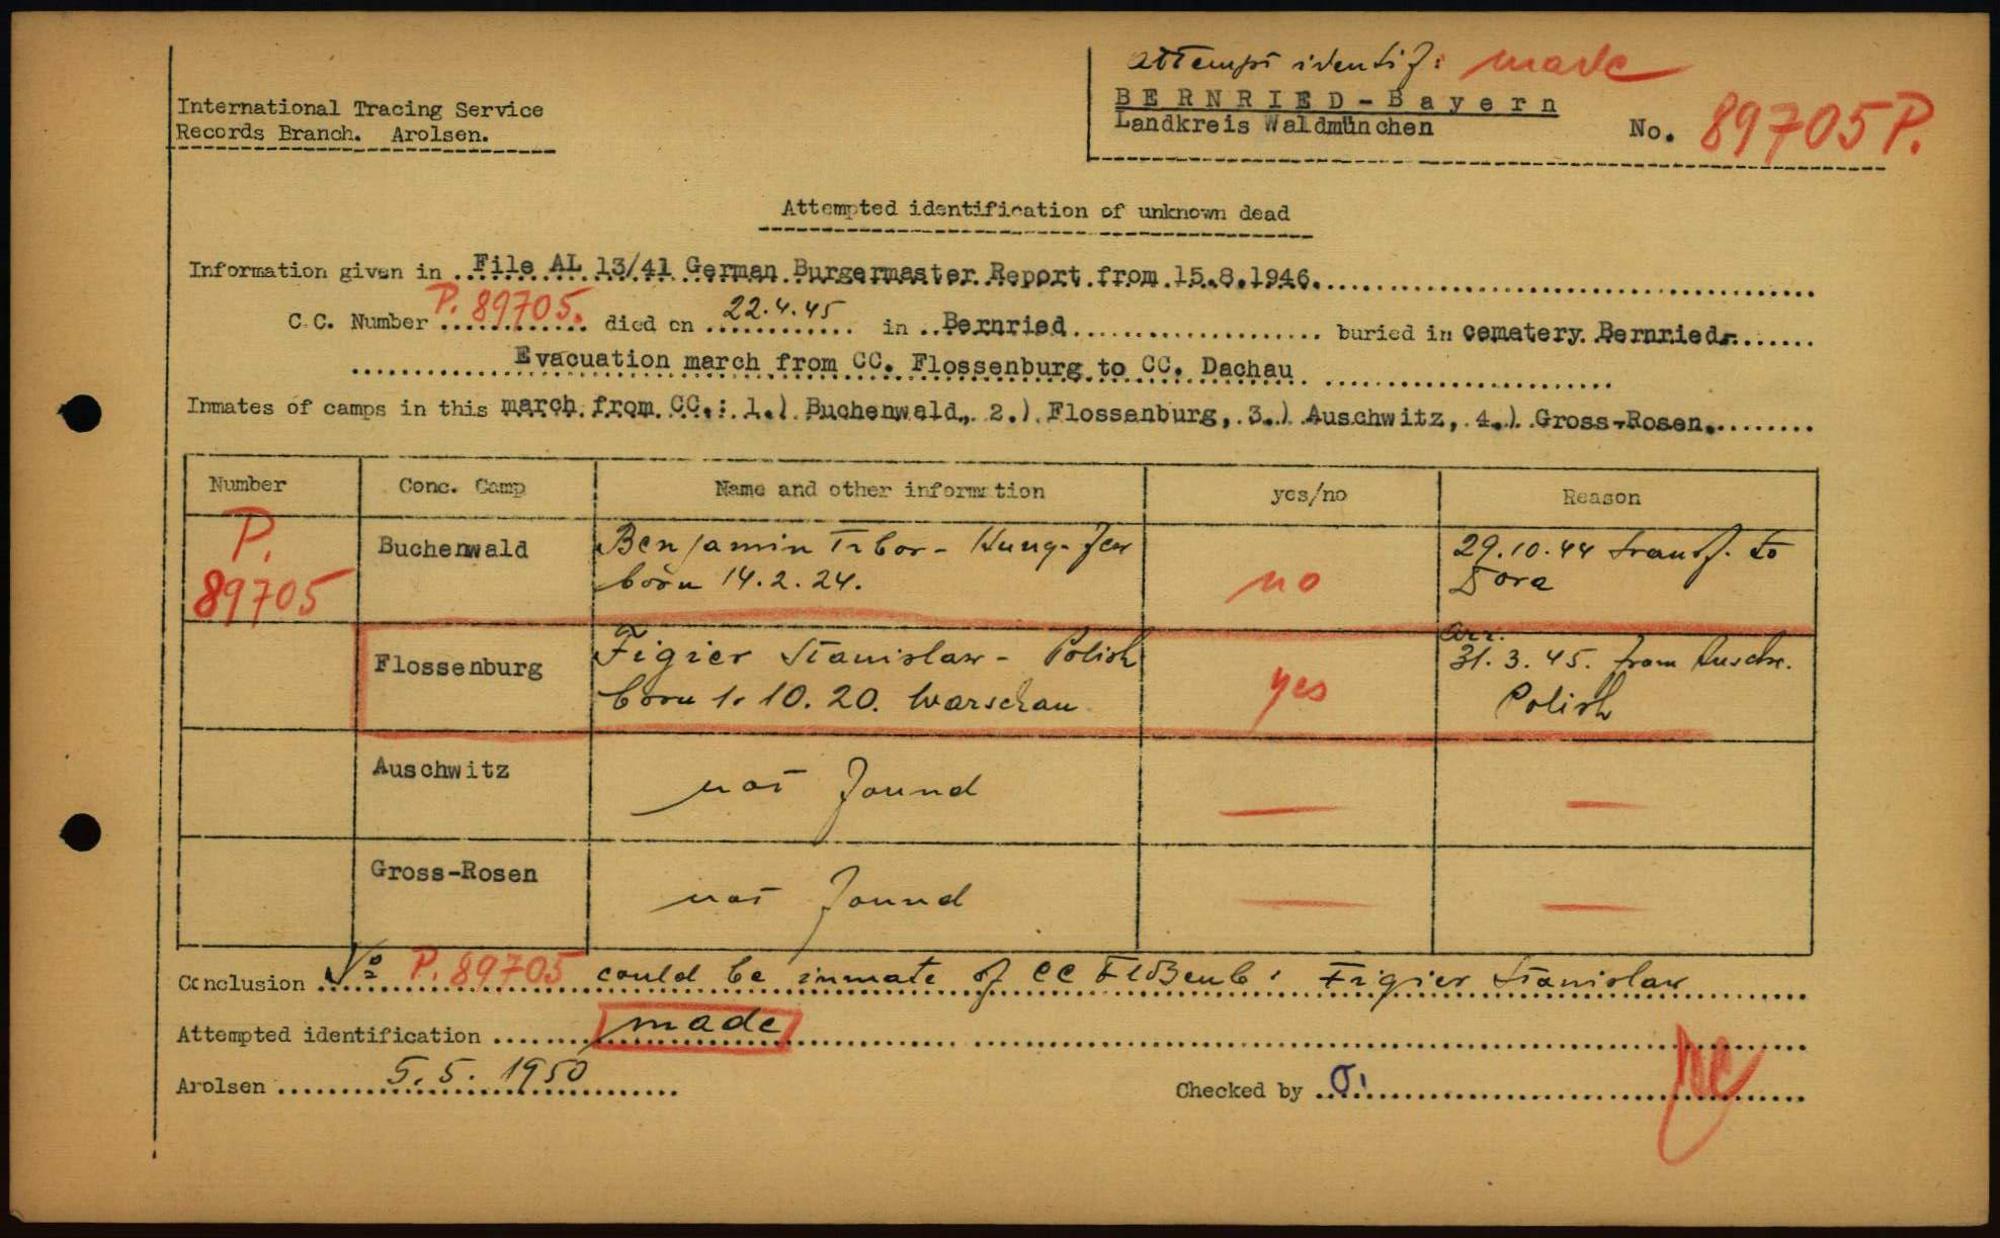 attempt identif: made
International Tracing Service
Records Branch. Arolsen.
BERNRIED-Bayern
Landkreis Waldmünchen
No. 89705 P.
Attempted identification of unknown dead
Information given in File AL 13/41 German Burgermaster Report from 15.8.1946.
C.C. Number P. 89705. died on 22.4.45 in Bernried buried in cematery Bernried.
Evacuation march from CC. Flossenburg to CC. Dachau
Inmates of camps in this march from CC.: 1.) Buchenwald, 2.) Flossenburg, 3.) Auschwitz, 4.) Gross-Rosen.
Number Conc. Camp Name and other information yes/no Reason
P. 89705 Buchenwald Benjamin Tibor - Hung. Jew
born 14.2.24. no 29.10.44 transf. to
Dora
Flossenburg Figier Stanislaw - Polish
born 1.10.20. Warschau yes arr.
31.3.45. from Auschw.
Polish
Auschwitz not found — —
Gross-Rosen not found — —
Conclusion No P. 89705 could be inmate of CC Floßenb: Figier Stanislaw
Attempted identification made
Arolsen 5.5.1950 Checked by